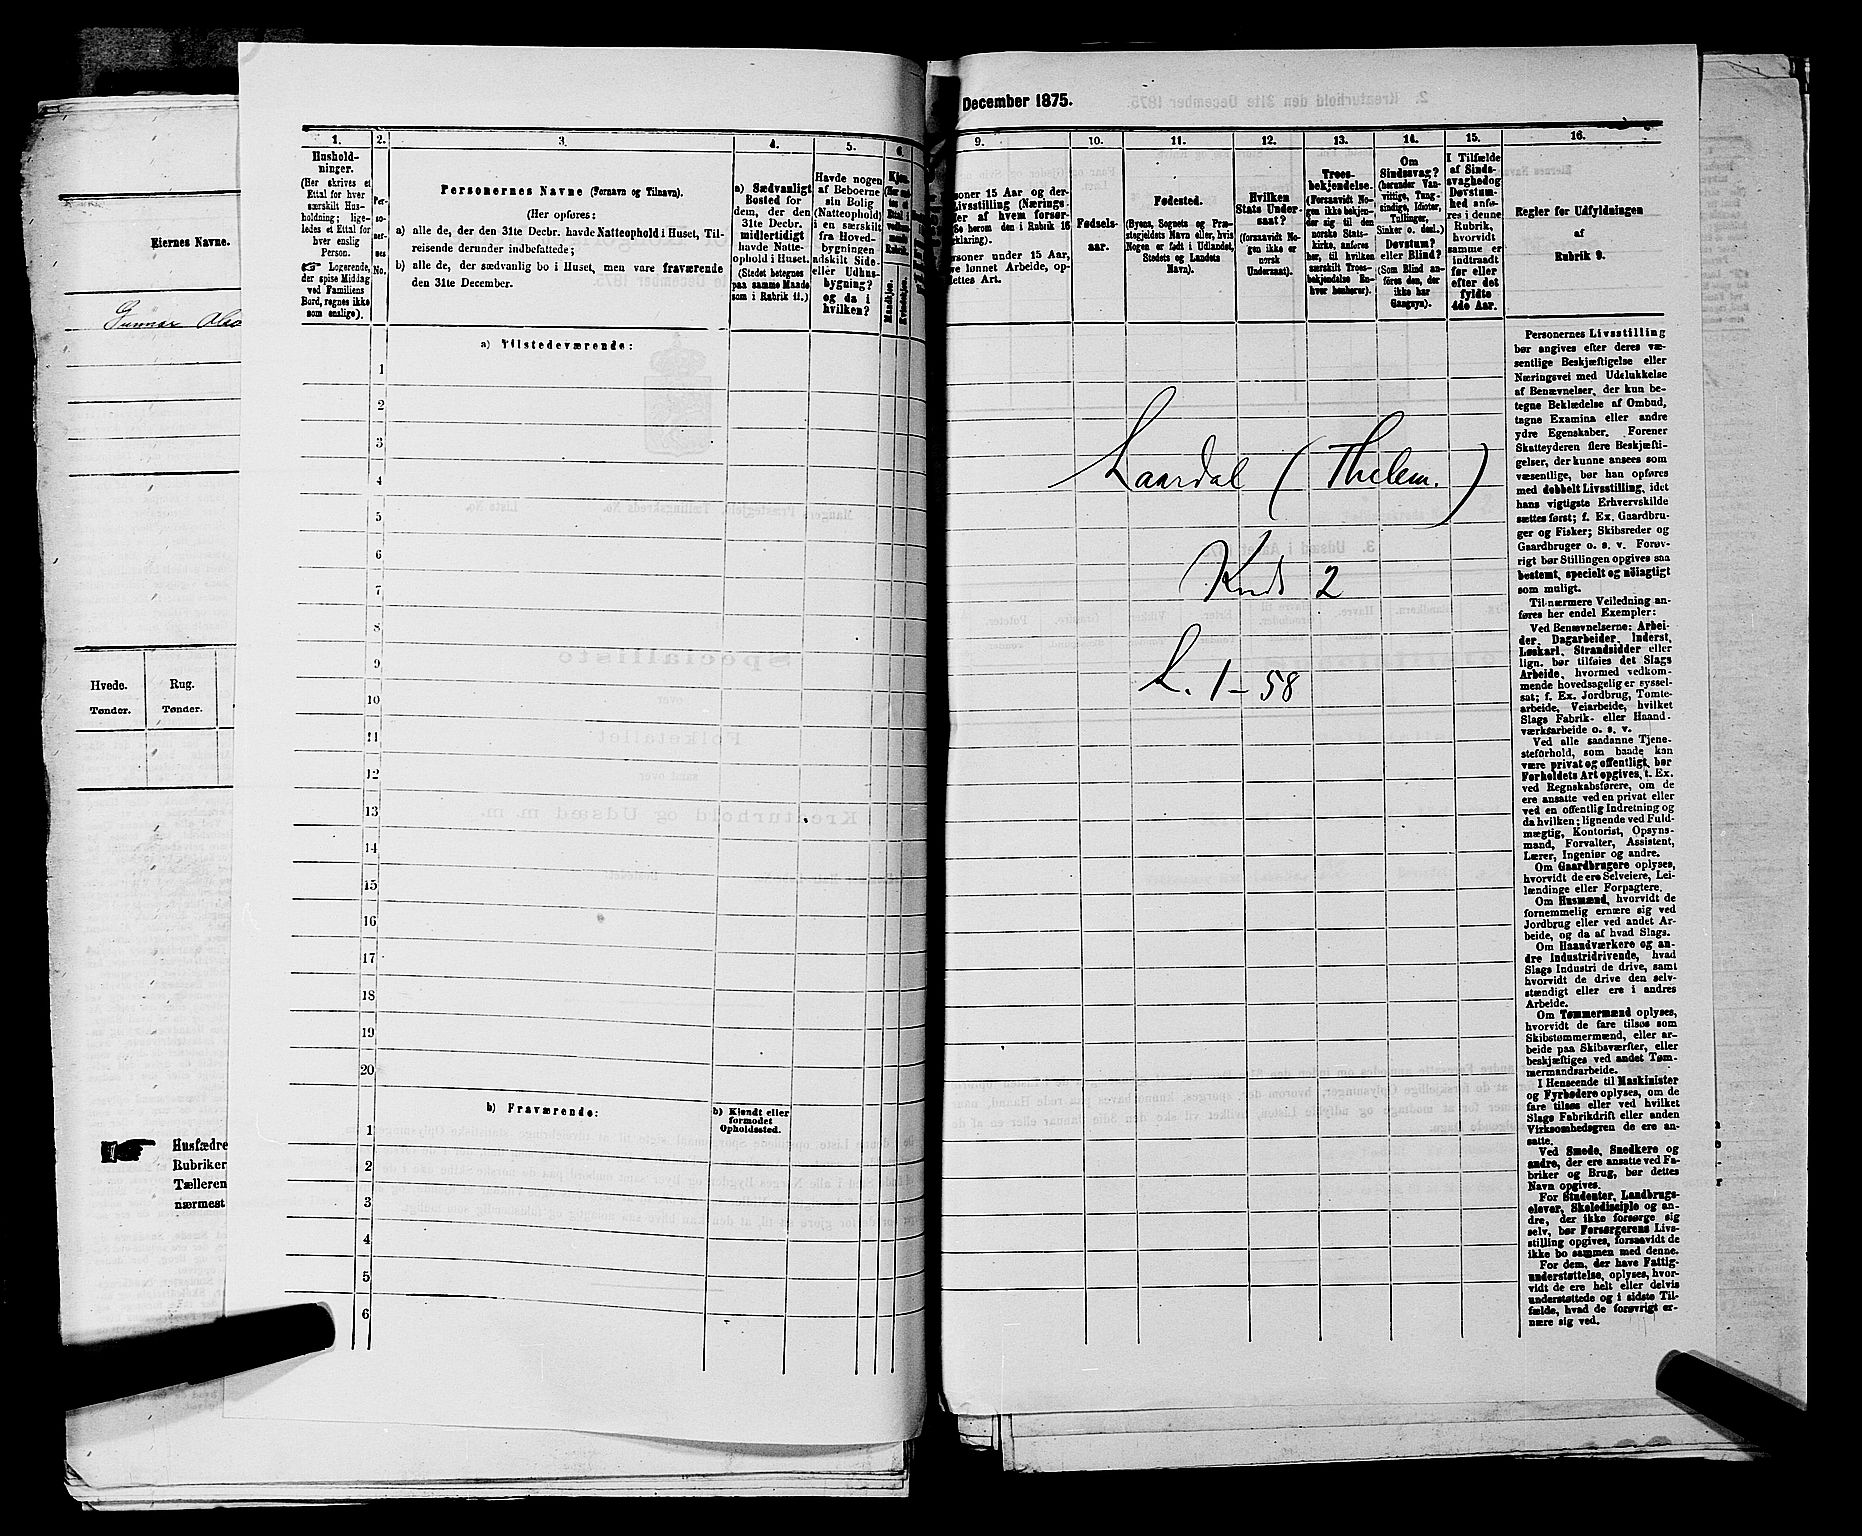 Eiernes Navne.
Gunnar
Hvede.
Tønder.
Rug.
Tønder.
Husfædre
Rubriker
Tælleren
nærmest
December 1875.
1.
Hushold-
ninger.
(Her skrives et
Ettal for hver
særskilt Hus-
holdning; lige-
ledes et Ettal for
hver enslig
Person.
Logerende,
der spise Middag
ved Familiens
Bord, regnes ikke
som enslige).
2.
3.
Personernes Navne (Fornavn og Tilnavn).
(Her opføres:
a) alle de, der den 31te Decbr. havde Natteophold i Huset, Til-
reisende derunder indbefattede;
b) alle de, der sædvanlig bo i Huset, men vare fraværende
den 31te December.
4.
a) Sædvanligt
Bosted for
dem, der den
31te Decbr.
midlertidigt
havde Natte-
ophold i Huset.
(Stedet betegnes
paa samme Maade
som i Rubrik 11.)
5.
Havde nogen
af Beboerne
sin Bolig
(Natteophold)
i en særskilt
fra Hoved-
bygningen
adskilt Side-
eller Udhus-
bygning?
og da i
hvilken?
6.
Kjøn.
Mandkjøn.
Kvindekjøn.
a) Tilstedeværende:
1
2
3
4
5
6
7
8
9
10
11
12
13
14
15
16
17
18
19
20
b) Fraværende:
b) Kjendt eller
formodet
Opholdssted.
1
2
3
4
5
6
9.
soner 15 Aar og der-
Livsstilling (Nærings-
ler af hvem forsør-
Se herom den i Rubrik 16
rklaring).
ersoner under 15 Aar,
re lønnet Arbeide, op-
dettes Art.
10.
Fødsels-
aar.
11.
Fødested.
(Byens, Sognets og Præ-
stegjeldets Navn eller, hvis
Nogen er født i Udlandet,
Stedets og Landets
Navn).
12.
Hvilken
Stats Under-
saat?
(forsaavidt No-
gen ikke er
norsk
Undersaat).
13.
Troes-
bekjendelse.
(Forsaavidt No-
gen ikke bekjen-
der sig til den
norske Stats-
kirke, anføres
her, til hvilken
særskilt Troes-
bekjendelse En-
hver henhører).
14.
Om
Sindssvag?
(herunder Van-
vittige, Tung-
sindige, Idioter,
Tullinger,
Sinker o. desl.)
Døvstum?
eller Blind?
(Som Blind an-
føres den, der
ikke har
Gangsyn).
15.
I Tilfælde
af Sinds-
svaghed og
Døvstum-
hed anfø-
res i denne
Rubrik,
hvorvidt
samme er
indtraadt
før eller
efter det
fyldte
4de Aar.
16.
Regler for Udfyldningen
af
Rubrik 9.
Laardal (Thelem.)
Kreds 2
L. 1-58
Personernes Livsstilling
bør angives efter deres væ-
sentlige Beskjæftigelse eller
Næringsvei med Udelukkelse
af Benævnelser, der kun be-
tegne Beklædelse af Ombud,
tagne Examina eller andre
ydre Egenskaber. Forener
Skatteyderen flere Beskjæfti-
gelser, der kunne ansees som
væsentlige, bør han opføres
med dobbelt Livsstilling, idet
hans vigtigste Erhvervskilde
sættes først; f. Ex. Gaardbru-
ger og Fisker; Skibsreder og
Gaardbruger o. s. v. Forøv-
rigt bør Stillingen opgives saa
bestemt, specielt og nøiagtigt
som muligt.
Til nærmere Veiledning an-
føres her endel Exempler:
Ved Benævnelserne: Arbei-
der, Dagarbeider, Inderst,
Løskarl, Strandsidder eller
lign. bør tilføies det Slags
Arbeide, hvormed vedkom-
mende hovedsagelig er syssel-
sat; f. Ex. Jordbrug, Tomte-
arbeide, Veiarbeide, hvilket
Slags Fabrik- eller Haand-
værksarbeide o. s. v.
Ved alle saadanne Tjene-
steforhold, som baade kan
være privat og offentligt, bør
Forholdets Art opgives, f. Ex.
ved Regnskabsførere, om de
ere ansatte ved en privat eller
ved en offentlig Indretning og
da hvilken; lignende ved Fuld-
mægtig, Kontorist, Opsyns-
mand, Forvalter, Assistent,
Lærer, Ingeniør og andre.
Om Gaardbrugere oplyses,
hvorvidt de ere Selveiere, Lei-
lændinge eller Forpagtere.
Om Husmænd, hvorvidt de
fornemmelig ernære sig ved
Jordbrug eller ved andet Ar-
beide, og da af hvad Slags.
Om Haandværkere og an-
dre Industridrivende, hvad
Slags Industri de drive, samt
hvorvidt de drive den selv-
stændigt eller ere i andres
Arbeide.
Om Tømmermænd oplyses,
hvorvidt de fare tilsøs som
Skibstømmermænd, eller ar-
beide paa Skibsværfter, eller
beskjæftiges ved andet Tøm-
mermandsarbeide.
I Henseende til Maskinister
og Fyrbødere oplyses, om de
fare tilsøs eller ved hvilket
Slags Fabrikdrift eller anden
Virksomhedsgren de ere an-
satte.
Ved Smede, Snedkere og
andre, der ere ansatte ved Fa-
briker og Brug, bør dettes
Navn opgives.
For Studenter, Landbrugs-
elever, Skoledisciple og an-
dre, der ikke forsørge sig
selv, bør Forsørgerens Livs-
stilling opgives, forsaavidt de
ikke bo sammen med denne.
For dem, der have Fattig-
understøttelse, oplyses, hvor-
vidt de ere helt eller delvis
understøttede og i sidste Til-
fælde, hvad de forøvrigt er-
nære sig ved.